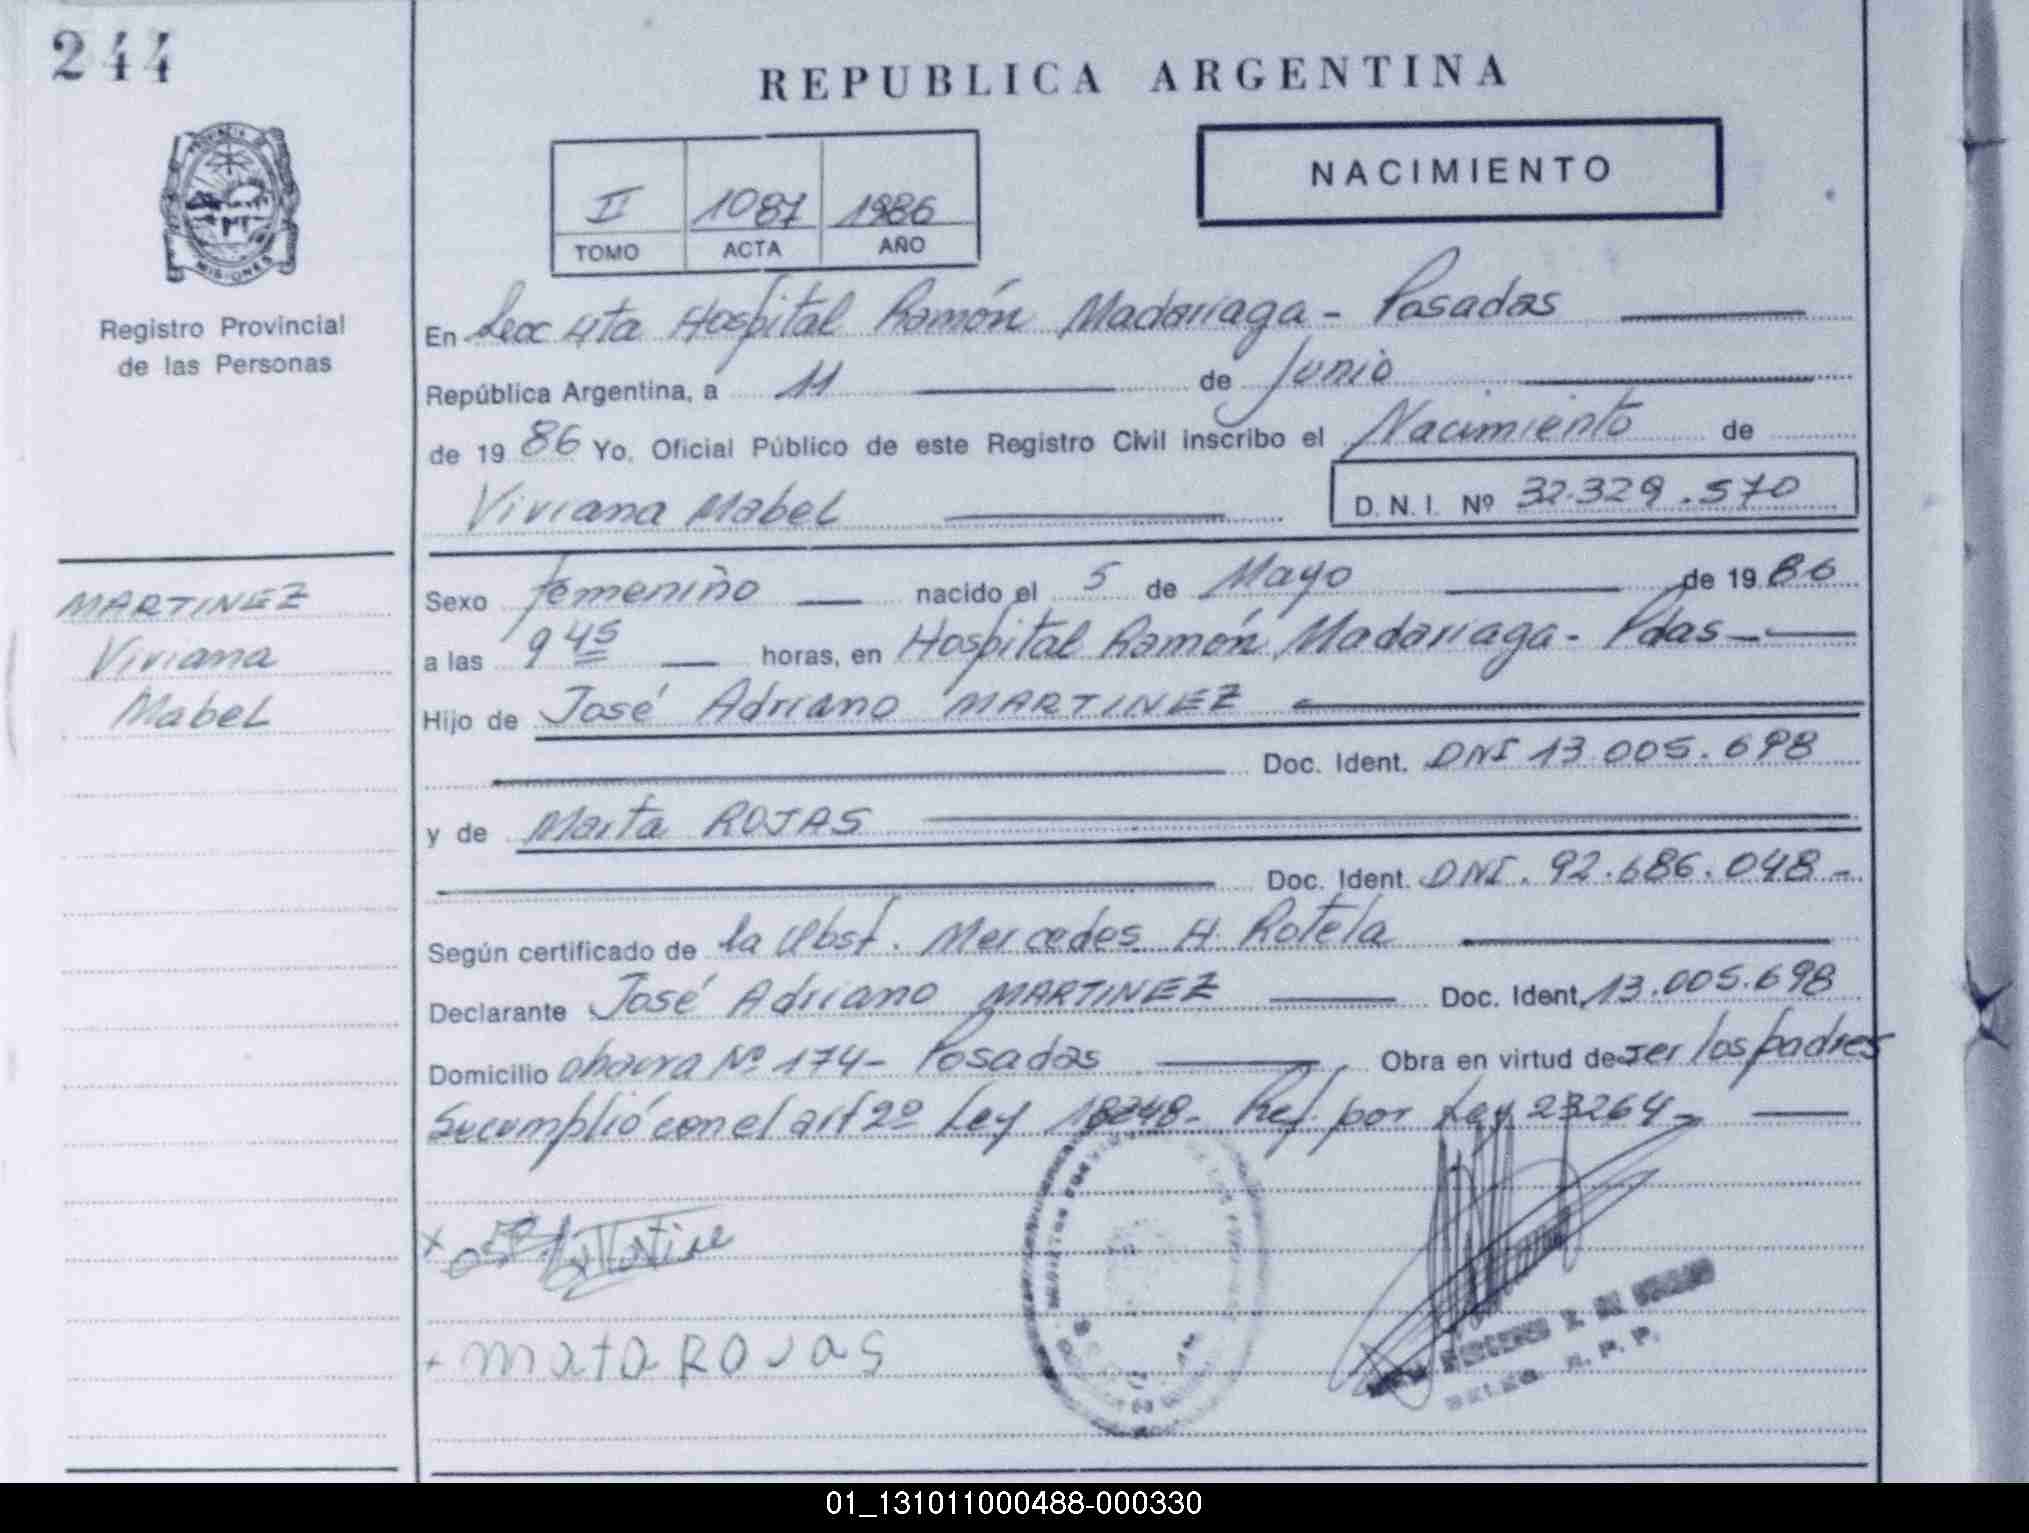 244
REPUBLICA ARGENTINA
NACIMIENTO
II 1087 1986
TOMO ACTA AÑO
PROVINCIA DE
MISIONES
Registro Provincial
de las Personas
En Secc 4ta Hospital Ramón Madariaga - Posadas
República Argentina, a 11 de Junio
de 19 86 Yo, Oficial Público de este Registro Civil inscribo el Nacimiento de
Viviana Mabel D.N.I. Nº 32.329.570
MARTINEZ
Viviana
Mabel
Sexo femenino nacido el 5 de Mayo de 19 86
a las 9 45 horas, en Hospital Ramón Madariaga - Pdas -
Hijo de José Adriano MARTINEZ
Doc. Ident. DNI 13.005.698
y de Marta ROJAS
Doc. Ident. DNI. 92.686.048 -
Según certificado de la Obst. Mercedes H. Rotela
Declarante José Adriano MARTINEZ Doc. Ident. 13.005.698
Domicilio chacra Nº 174 - Posadas Obra en virtud de ser los padres
Se cumplió con el art 2º Ley 18248 - Ref. por Ley 23264 -
x
+ mata ROJAS
R. P. P.
01_131011000488-000330